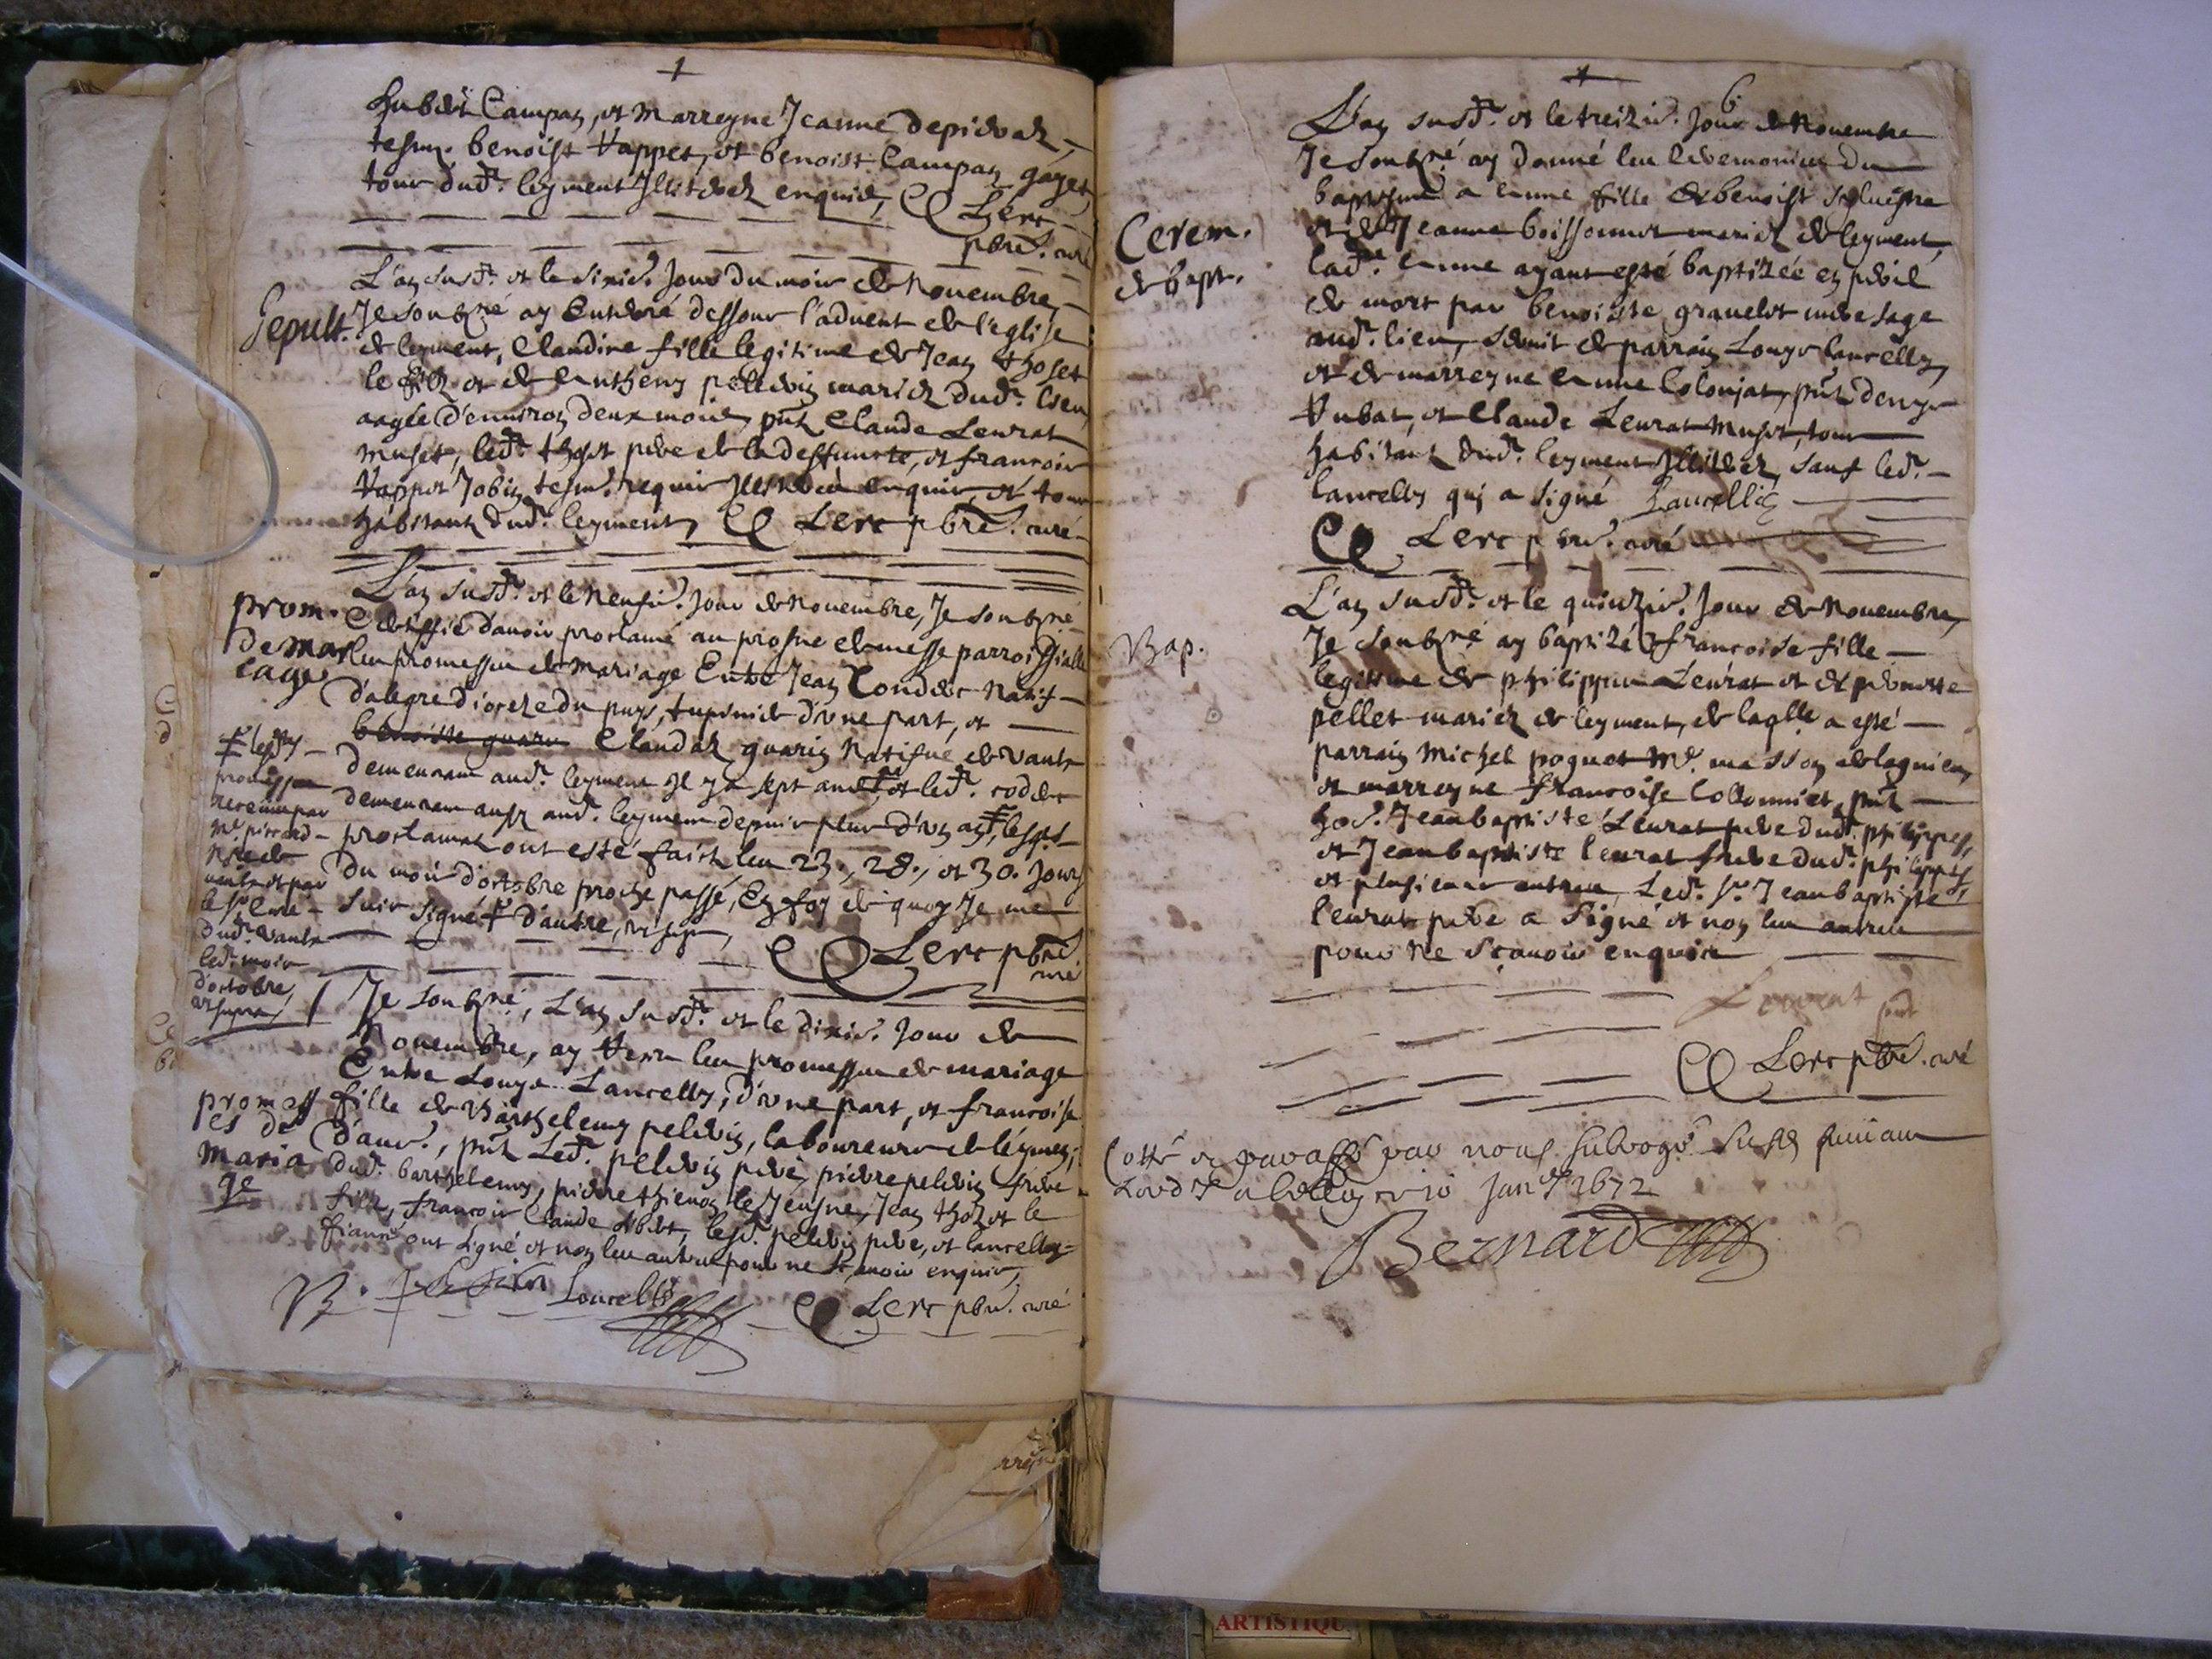 Hubert Campan, et marreyne Jeanne
tesm. benoist Vappet, et benoist Campan gayet,
tous dud. leyment Illiterez enquis, Clerc
pbre. curé
Sepult.
L'an susd. et le sixie. Jour du mois de Novembre,
Je soubzné ay Enterré dessous l'advent de l'eglise
de leyment, Claudine fille legitime de Jean thoset
le filz et de Antheny pelerin mariez dud. lieu
aagée d'environ deux mois, pntz Claude Leurat
muset, led. thoset pere de la deffuncte, et francois
Vappet Jobin tesm. requis Illiterez enquis, et tous
habitants dud. leyment, Clerc pbre. curé
prom.
de mar
iage
L'an susd. et le Neufie. Jour de Novembre, Je soubzné
Certiffie d'avoir proclamé au prosne de messe parroissialle
les promesses de Mariage Entre Jean Condert Natif
d'alegre dioceze du puys, d'une part, et
benoiste guarin Claudaz guarin Natifve de Vaulx
demeurant aud. leyment Il y a sept ans, et led. codert
demeurant aussy aud. leyment depuis plus d'un an, lesqls
proclamat. ont esté faictz les 23., 28., et 30. Jours
du mois d'octobre proche passé, En foy de quoy Je me
suis signé d'autre, Clerc pbre.
curé
lesd.
promesses
receues par
Me piccard
Nre de
vaulx et par
le sr Cure
dud. vaulx
led. mois
d'octobre
ut supra
promess
es de
maria
ge
Je soubzné, L'an susd. et le dixie. Jour de
Novembre, ay les promesses de mariage
Entre Louys Lancelly, d'une part, et francoise
fille de Barthelemy pelerin, laboureurs de leyment,
d'aut., pntz Led. pelerin pere, pierre pelerin frere
dud. barthelemy, pierre thienon le Jeusne, Jean thozet le
filz, francois Claude Abert, lesd. pelerin pere, et lancelly
fiancé ont signé et non les autres pour ne scavoir enquis,
B. Lancelly Clerc pbre. curé
6.
Cerem.
de bapt.
L'an susd. et le treizie. Jour de Novembre
Je soubzné ay donné les ceremonies du
baptesme a Anne fille de benoist silvestre
et de Jeanne boissonnet mariez de leyment,
lad. Anne ayant esté baptizée en peril
de mort par benoiste gravelot mere sage
aud. lieu, servit de parrain Louys lancelly,
et de marreyne Anne Colonjat, pntz denys
Vubat, et Claude Leurat Muset, tous
habitants dud. leyment Illiterez, sauf led.
lancelly qui a signé Lancelli
Clerc pbre. curé
Bap.
L'an susd. et le quinzie. Jour de Novembre,
Je soubzné ay baptizé francoise fille
legitime de philippes Leurat et de pernette
pellet mariez de leyment, de laqlle a esté
parrain Michel poguet Me. masson de lagnieu,
et marreyne francoise Collonniet, pntz
hon. Jean baptiste Leurat pere dud. philippes,
et Jean baptiste leurat frere dud. philippes,
et plusieurs autres, Led. sr. Jean baptiste
leurat pere a Signé et non les autres
pour ne scavoir enquis
Leurat
Clerc pbre. curé
Cotté et paraffé par nous subrogé suivant
Lord a Belley ce 10 Janer 1672
Bernard
ARTISTIQU